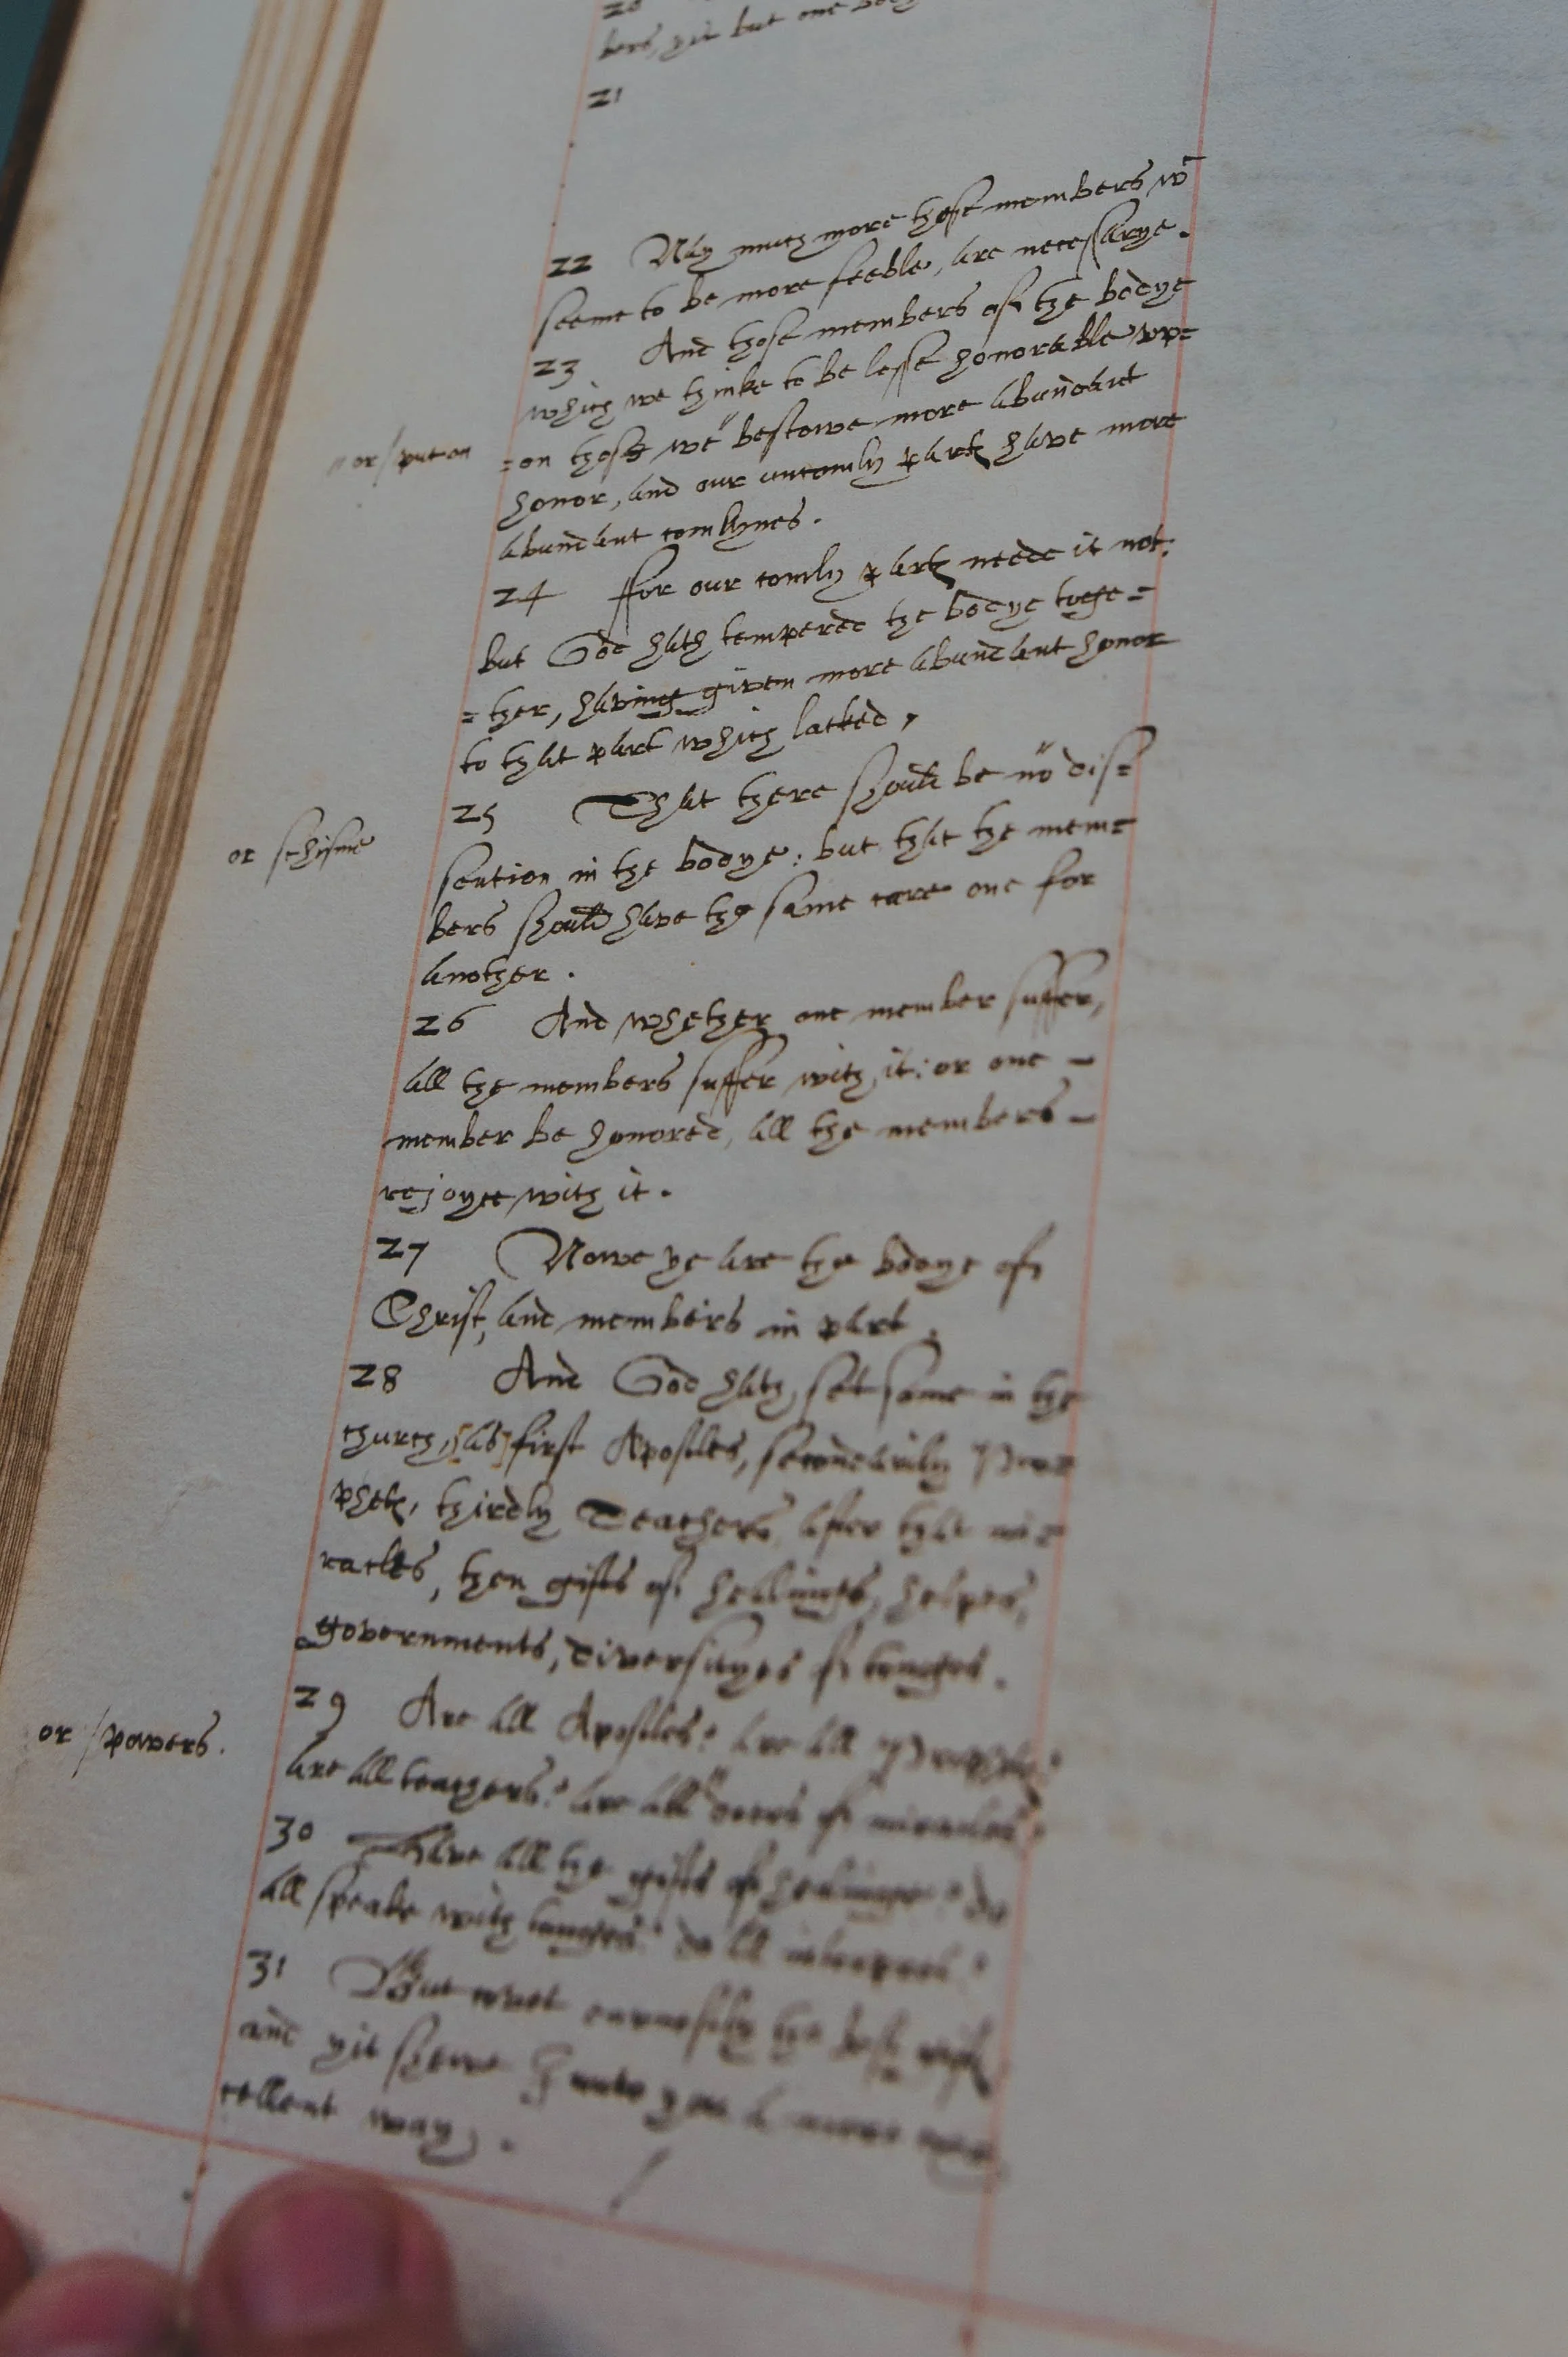 20
bers, yit but one body
21
22 Nay much more those members wͨ
seeme to be more feeble, are necessarye.
23 And those members of the bodye
which we thinke to be lesse honorable up=
"or/put on
=on those we "bestowe more abundant
honor, and our uncomly partes have more
abundant comlynes.
24 ffor our comly partes neede it not:
but God hath tempered the bodye toge=
=ther, having given more abundant honor
to that part which lacked,
25 That there should be "no dis=
or schisme
sention in the bodye: but that the mem=
bers should have the same care one for
another.
26 And whether one member suffer,
all the members suffer with it: or one -
member be honored, all the members -
rejoyce with it.
27 Nowe ye are the bodye of
Christ, and members in part.
28 And God hath set some in the
church, [as] first Apostles, secondarily Pro=
phets, thirdly Teachers, after that mi=
racles, then gifts of healinges, helpes,
governments, diversityes of tonges.
29 Are all Apostles? are all Prophets?
or/powers.
are all teachers? are all "doers of miracles?
30 Have all the gifts of healinge? do
all speake with tonges? do all interpret?
31 But covet earnestly the best gifts
and yit shewe I unto you a more exc
cellent way.